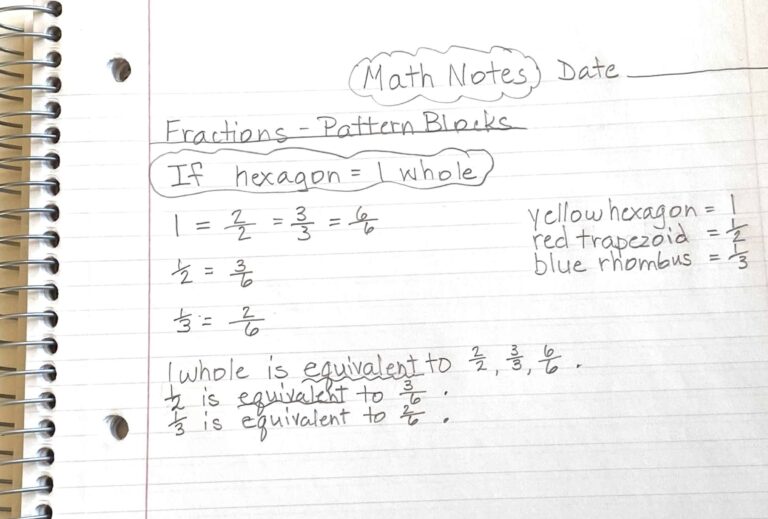 Math Notes Date
Fractions - Pattern Blocks
If hexagon = 1 whole
1 = 2/2 = 3/3 = 6/6
1/2 = 3/6
1/3 = 2/6
yellow hexagon = 1
red trapezoid = 1/2
blue rhombus = 1/3
1 whole is equivalent to 2/2, 3/3, 6/6.
1/2 is equivalent to 3/6.
1/3 is equivalent to 2/6.